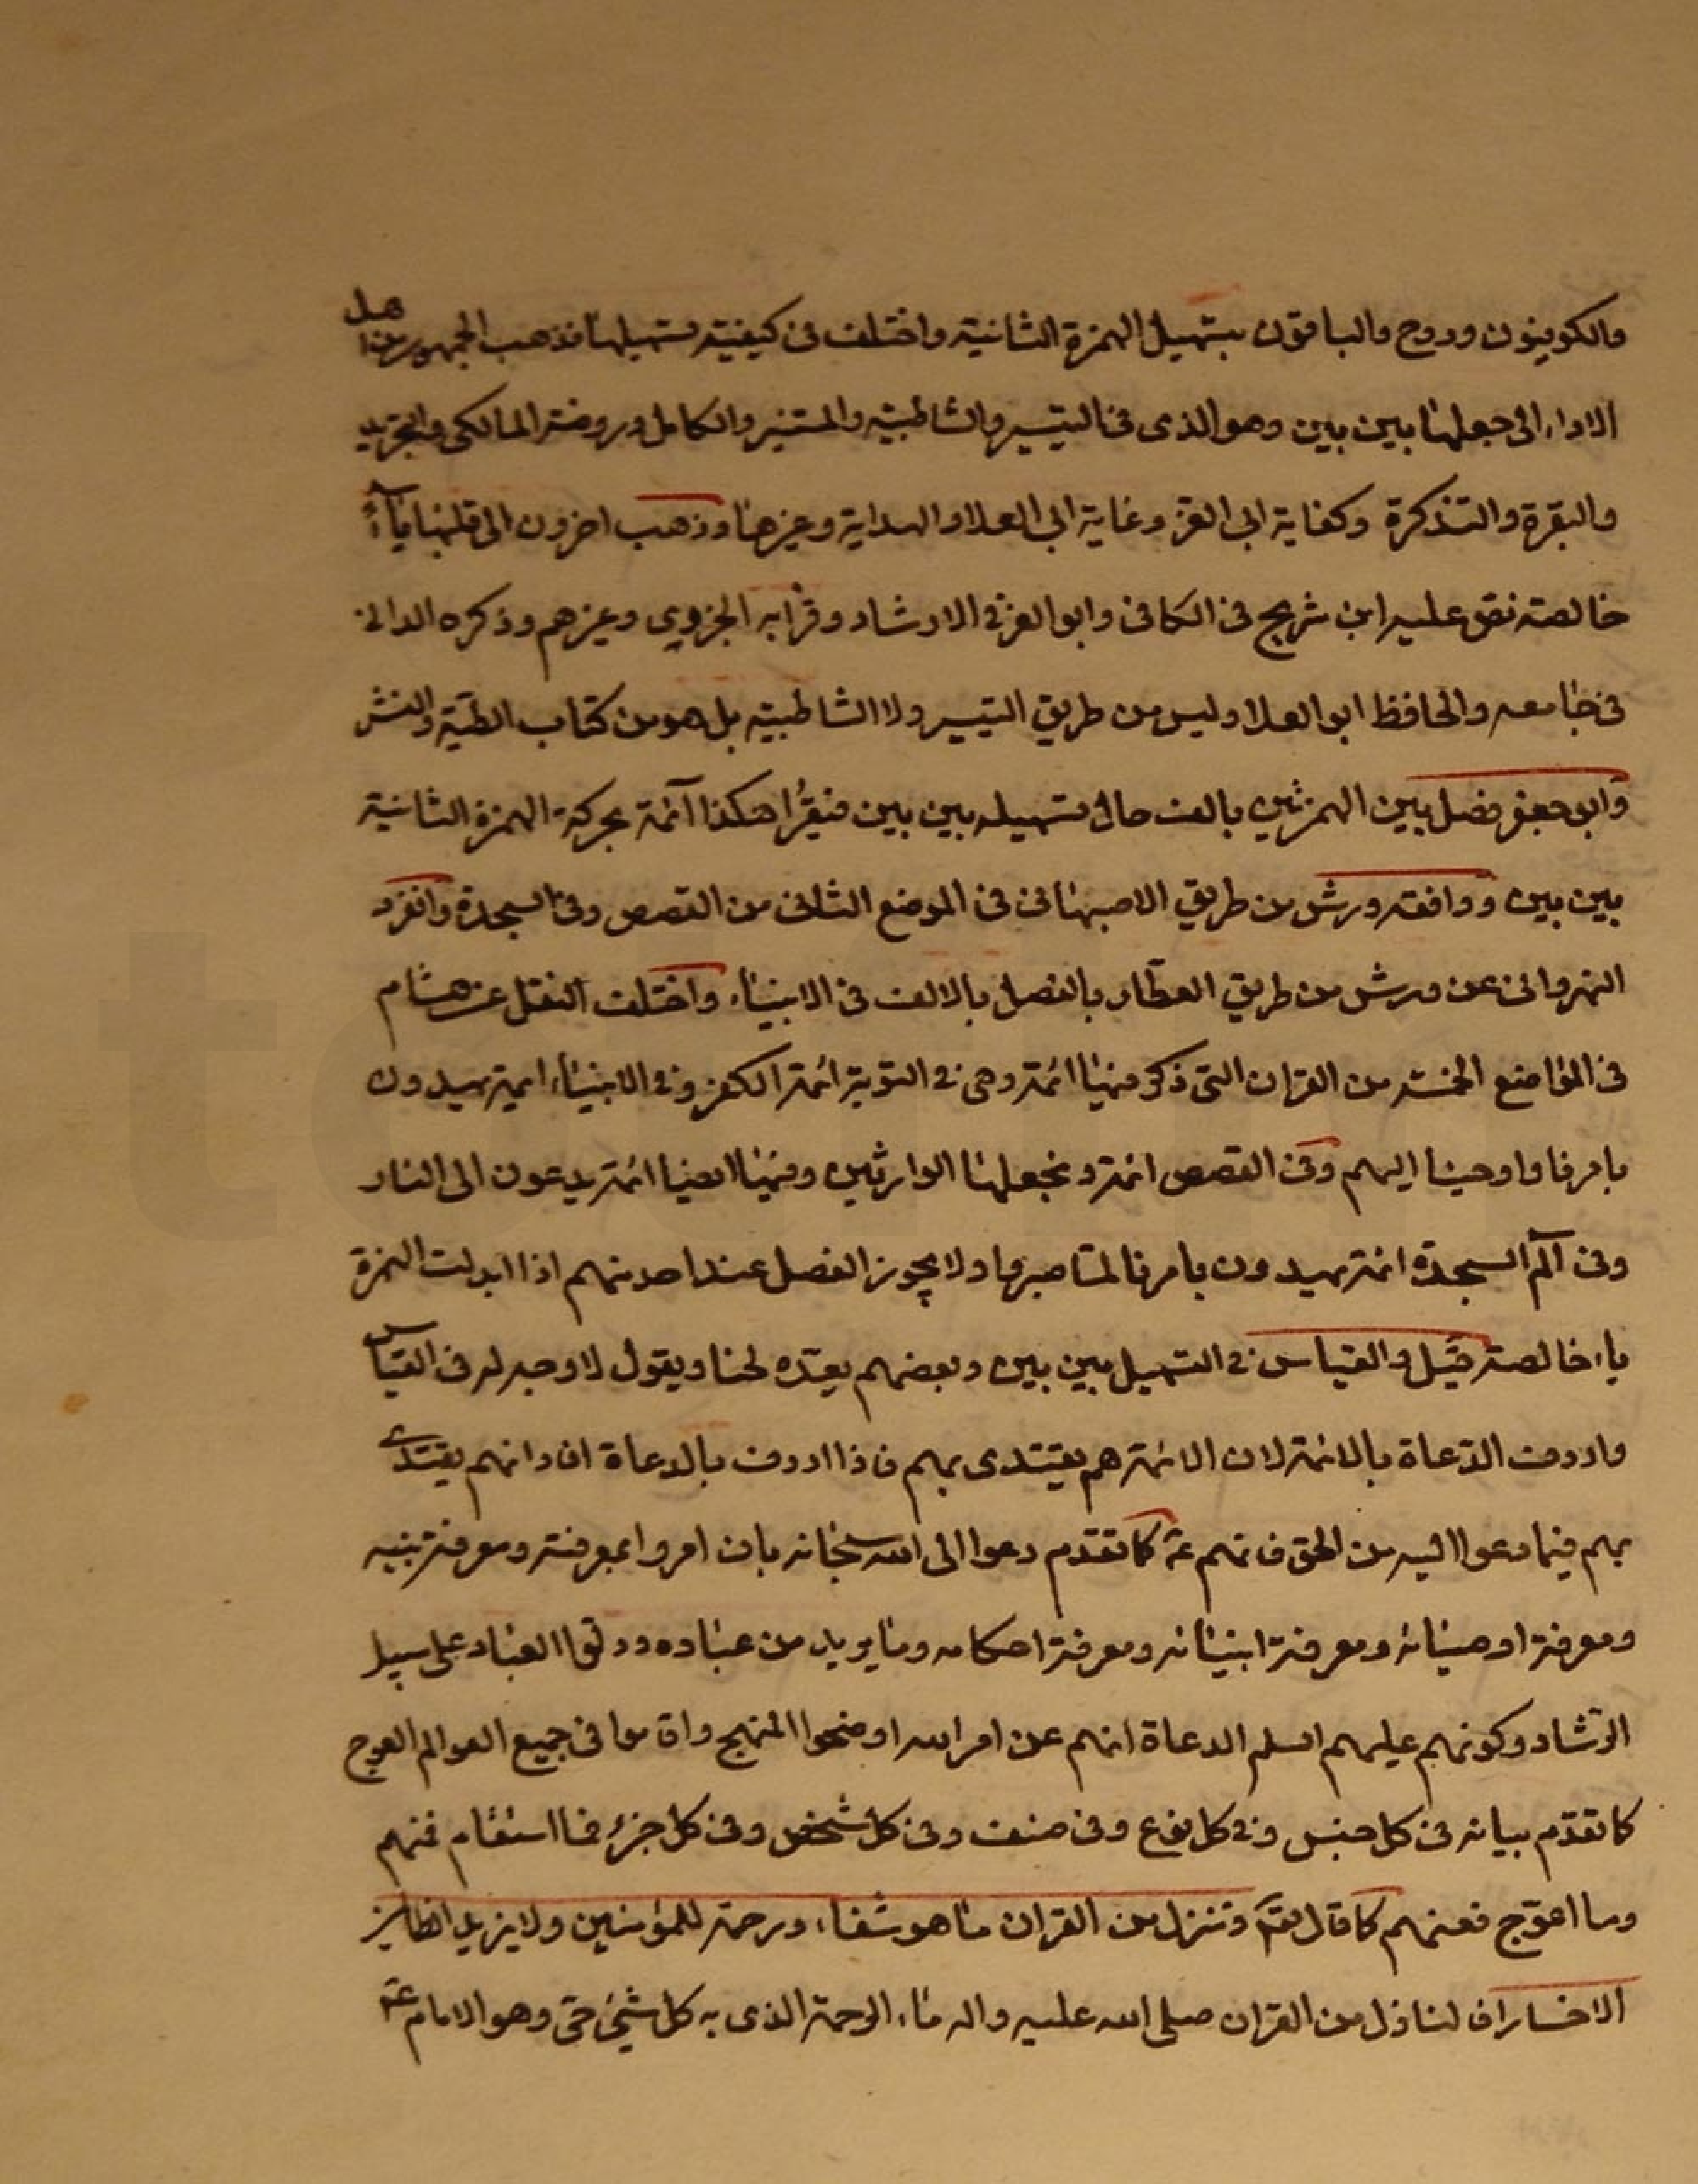 والكوفيون وروح والباقون بتسهيل الهمزة الثانية واختلف في كيفية تسهيلها فذهب الجمهور من اهل
الاداء الى جعلها بين بين وهو الذى في التيسير والشاطبية والمستنير والكامل وروضة المالكى والتجريد
والتبصرة والتذكرة وكفاية ابى العز وغاية ابى العلاء والهداية وغيرها وذهب اخرون الى قلبها ياآء
خالصة نص عليه ابن شريح فى الكافى وابو العز فى الارشاد وقرأ به الجزرى وغيرهم وذكره الدانى
فى جامعه والحافظ ابو العلا وليس من طريق التيسير ولا الشاطبية بل هو من كتاب الطيبة والنشر
وابو جعفر فصل بين الهمزتين بالف حال تسهيله بين بين فيقرأ هكذا آئمة بحركة الهمزة الثانية
بين بين ووافقه ورش من طريق الاصبهانى فى الموضع الثانى من القصص وفى السجدة وانفرد
النهروانى عن ورش من طريق العطار بالفصل بالالف فى الانبياء واختلف النقل عن هشام
فى المواضع الخمسة من القران التى ذكر فيها ائمة وهى فى التوبة ائمة الكفر وفى الانبياء ايمة يهدون
بامرنا واوحينا اليهم وفى القصص ائمة ونجعلهنا الوارثين وفيها ايضا ائمة يدعون الى النار
وفى الم السجدة ائمة يهدون بامرنا لما صبروا ولا يجوز الفصل عند احد منهم اذا ابدلت الهمزة
ياء خالصة قيل والقياس فى التسهيل بين بين وبعضهم يعده لحنا ويقول لا وجه له فى القياس
واردف الدعاة بالائمة لان الائمة هم يقتدى بهم فاذا اردف بالدعاة افاد انهم يقتدى
بهم فيما دعوا اليه من الحق فانهم ع كما تقدم دعوا الى الله سبحانه بان امروا بمعرفته ومعرفة نبيه
ومعرفة اوصيائه ومعرفة انبيائه ومعرفة احكامه وما يريد من عباده ودلوا العباد على سبيل
الرشاد وكونهم عليهم السلم الدعاة انهم عن امر الله اوضحوا المنهج واقاموا فى جميع العوالم العوج
كما تقدم بيانه فى كل جنس وفى كل نوع وفى صنف وفى كل شخص وفى كل جزء فما استقام فبهم
وما اعوج فعنهم كما قال تعالى وننزل من القران ما هو شفاء ورحمة للمؤمنين ولا يزيد الظالمين
الا خسارا فالنازل من القران صلى الله عليه واله ماء الرحمة الذى به كل شئ حى وهو الامام ع